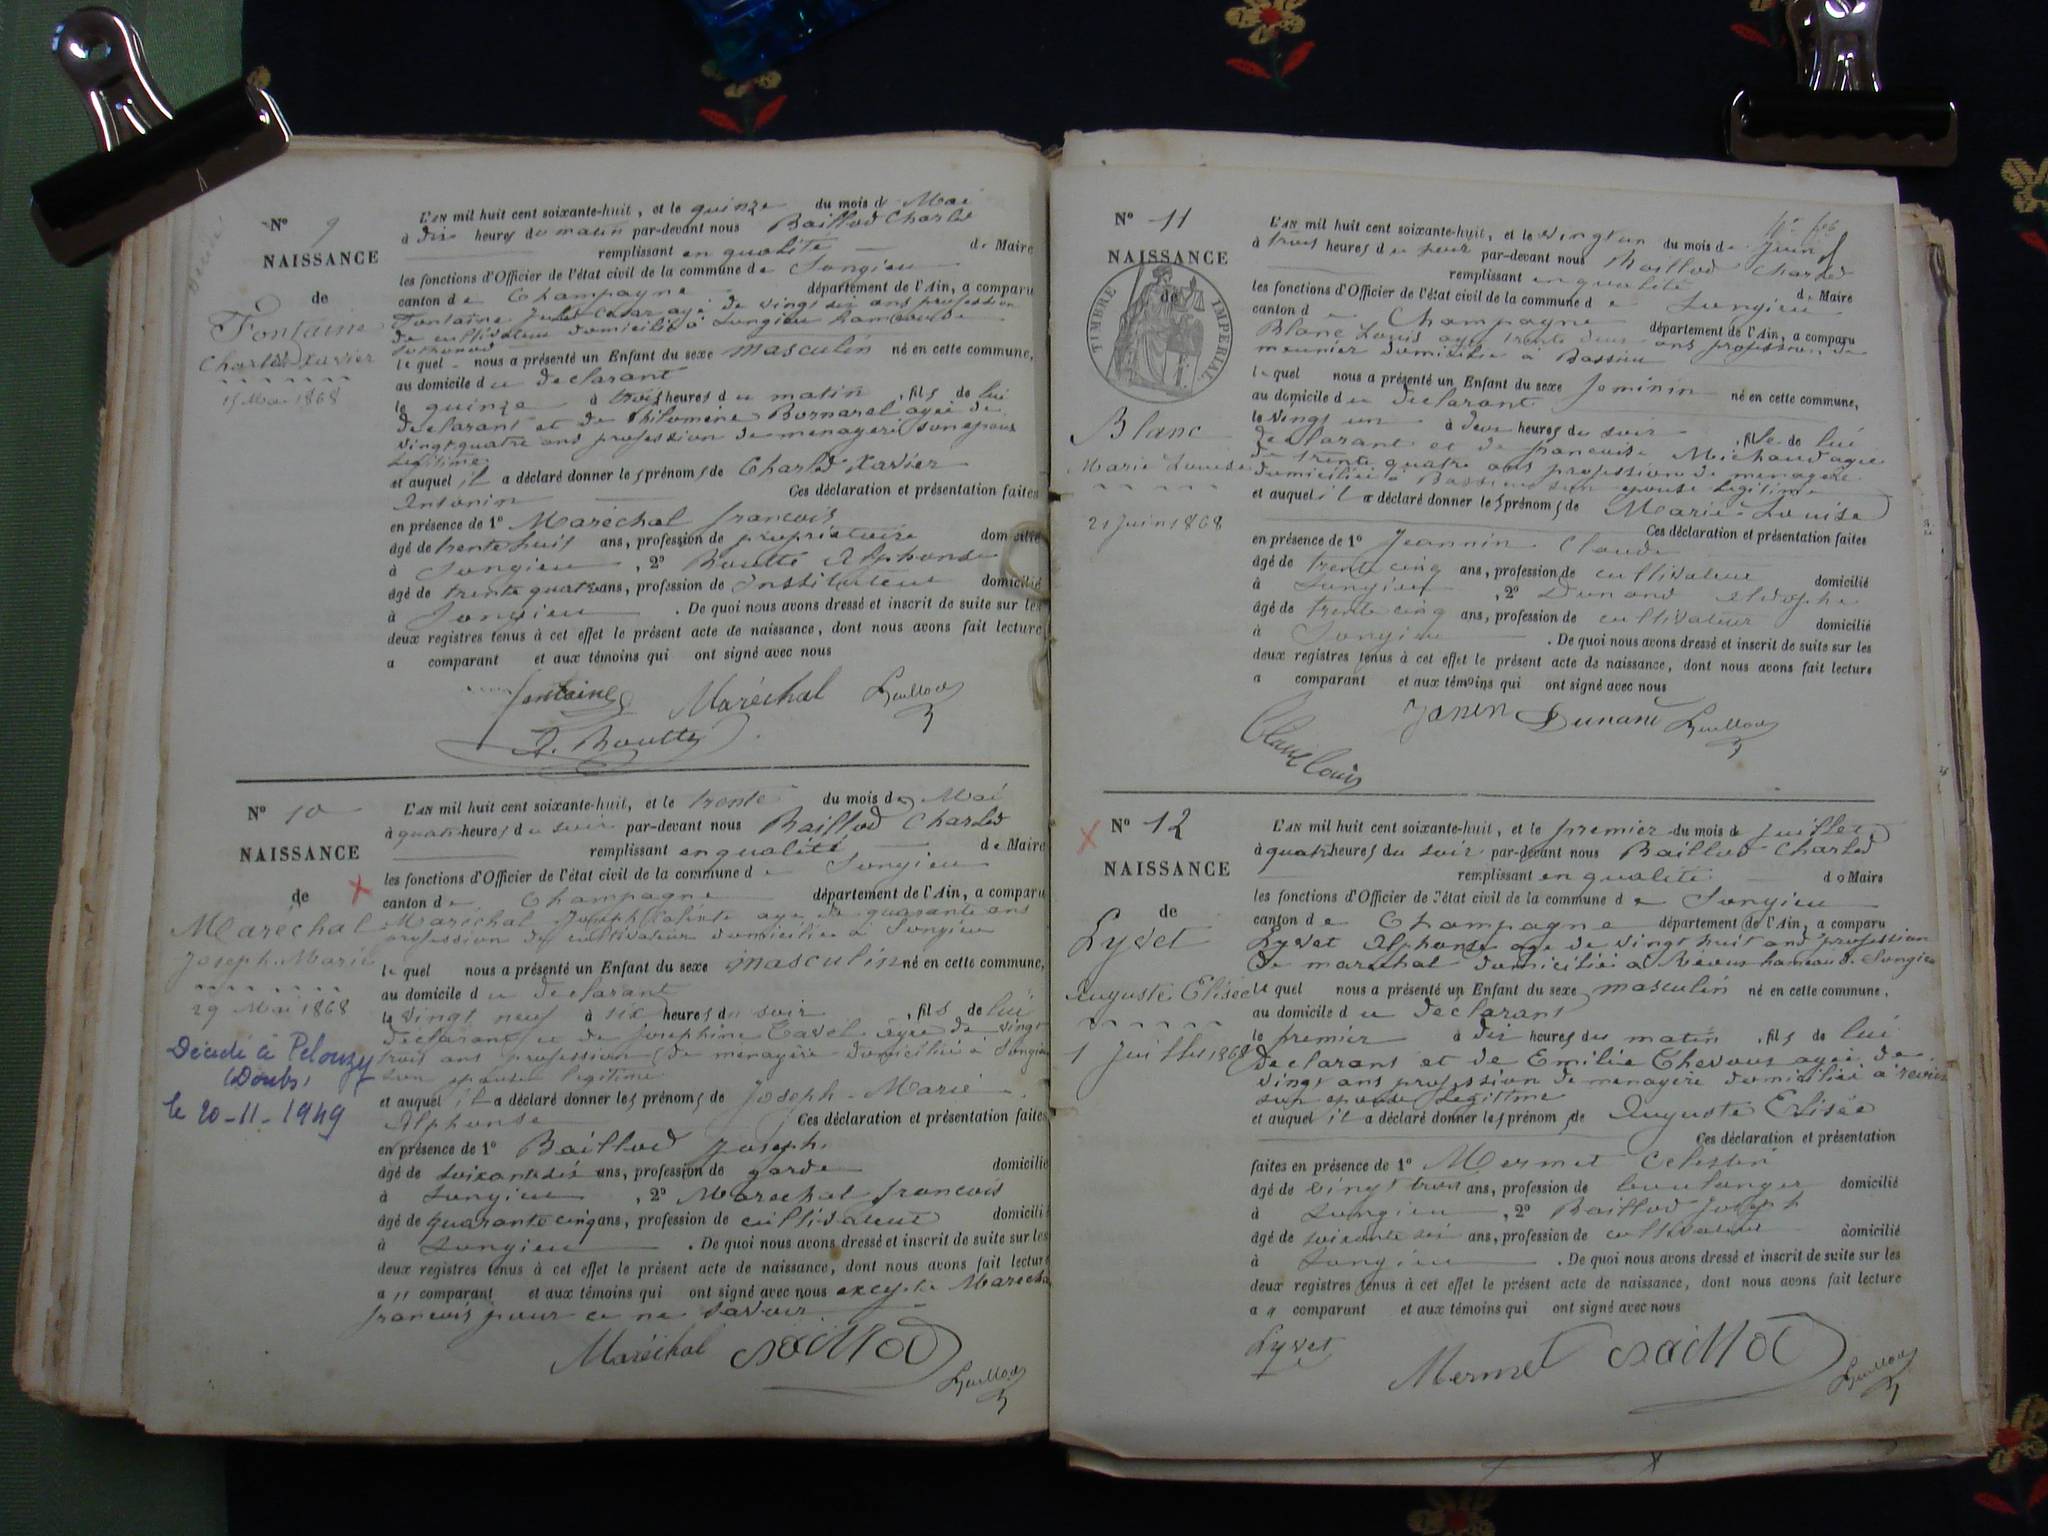 N° 9
NAISSANCE
de
Fontaine
Charles Xavier
15 Mai 1868
L'AN mil huit cent soixante-huit, et le quinze du mois de Mai
à dix heures du matin par-devant nous Baillod Charles
remplissant en qualité de Maire
les fonctions d'Officier de l'état civil de la commune de Songieu
canton de Champagne département de l'Ain, a comparu
Fontaine Jules Cesar agé de vingt six ans profession
de cultivateur domicilié à Songieu hameau de
Sothonod
le quel nous a présenté un Enfant du sexe masculin né en cette commune,
au domicile du declarant
le quinze à trois heures du matin , fils de lui
declarant et de Philomène Bornarel agée de
vingt quatre ans profession de menagère son epouse
legitime
et auquel il a déclaré donner les prénoms de Charles Xavier
Antonin Ces déclaration et présentation faites
en présence de 1° Maréchal francois
âgé de trente huit ans, profession de propriétaire domicilié
à Songieu , 2° Boutte Alphonse
âgé de trente quatre ans, profession de Instituteur domicilié
à Songieu . De quoi nous avons dressé et inscrit de suite sur les
deux registres tenus à cet effet le présent acte de naissance, dont nous avons fait lecture
a comparant et aux témoins qui ont signé avec nous
fontaine Maréchal Baillod
A. Boutte
N° 10
NAISSANCE
de
Maréchal
Joseph-Marie
29 Mai 1868
Décédé à Pelouzy
(Doubs)
le 20-11-1949
L'AN mil huit cent soixante-huit, et le trente du mois de Mai
à quatre heures du soir par-devant nous Baillod Charles
remplissant en qualité de Maire
les fonctions d'Officier de l'état civil de la commune de Songieu
canton de Champagne département de l'Ain, a comparu
Maréchal Joseph Calixte agé de quarante ans
profession de cultivateur domicilié à Songieu
le quel nous a présenté un Enfant du sexe masculin né en cette commune,
au domicile du declarant
le vingt neuf à six heures du soir , fils de lui
declarant et de Josephine Tavel agée de vingt
trois ans profession de menagère domiciliée à Songieu
son epouse legitime
et auquel il a déclaré donner les prénoms de Joseph-Marie
Alphonse Ces déclaration et présentation faites
en présence de 1° Baillod Joseph
âgé de soixante six ans, profession de garde domicilié
à Songieu , 2° Marechal francois
âgé de quarante cinq ans, profession de cultivateur domicilié
à Songieu . De quoi nous avons dressé et inscrit de suite sur les
deux registres tenus à cet effet le présent acte de naissance, dont nous avons fait lecture
a comparant et aux témoins qui ont signé avec nous excepté Maréchal
francois pour ce ne savoir
Maréchal Baillod Baillod
N° 11
NAISSANCE
de
TIMBRE IMPERIAL
Blanc
Marie Louise
21 Juin 1868
L'AN mil huit cent soixante-huit, et le vingt un du mois de Juin
à trois heures du soir par-devant nous Baillod Charles
remplissant en qualité de Maire
les fonctions d'Officier de l'état civil de la commune de Songieu
canton de Champagne département de l'Ain, a comparu
Blanc Louis agé trente deux ans profession de
meunier domicilié à Bassieu
le quel nous a présenté un Enfant du sexe feminin né en cette commune,
au domicile du declarant
le vingt un à deux heures du soir , fille de lui
declarant et de francoise Michaud agée
de trente quatre ans profession de menagère
domiciliée à Bassieu son epouse legitime
et auquel il a déclaré donner les prénoms de Marie-Louise
Ces déclaration et présentation faites
en présence de 1° Jeannin Claude
âgé de trente cinq ans, profession de cultivateur domicilié
à Songieu , 2° Dunand Adolphe
âgé de trente cinq ans, profession de cultivateur domicilié
à Songieu . De quoi nous avons dressé et inscrit de suite sur les
deux registres tenus à cet effet le présent acte de naissance, dont nous avons fait lecture
a comparant et aux témoins qui ont signé avec nous
Janin Dunand Baillod
Blanc Louis
N° 12
NAISSANCE
de
Lyvet
Auguste Elisée
1 Juillet 1868
L'AN mil huit cent soixante-huit, et le premier du mois de Juillet
à quatre heures du soir par-devant nous Baillod Charles
remplissant en qualité de Maire
les fonctions d'Officier de l'état civil de la commune de Songieu
canton de Champagne département de l'Ain, a comparu
Lyvet Alphonse agé de vingt huit ans profession
de marechal domicilié à hameau de Songieu
le quel nous a présenté un Enfant du sexe masculin né en cette commune,
au domicile du declarant
le premier à dix heures du matin , fils de lui
declarant et de Emilie Chevous agée de
vingt ans profession de menagère domiciliée à
son epouse legitime
et auquel il a déclaré donner les prénoms de Auguste Elisée
Ces déclaration et présentation
faites en présence de 1° Mermet Celestin
âgé de vingt trois ans, profession de boulanger domicilié
à Songieu , 2° Baillod Joseph
âgé de soixante six ans, profession de cultivateur domicilié
à Songieu . De quoi nous avons dressé et inscrit de suite sur les
deux registres tenus à cet effet le présent acte de naissance, dont nous avons fait lecture
a comparant et aux témoins qui ont signé avec nous
Lyvet Mermet Baillod Baillod